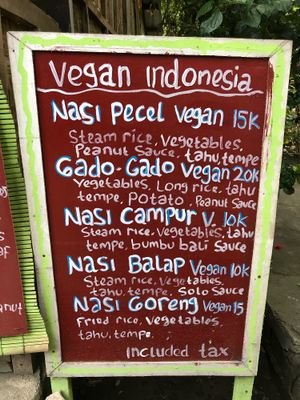 Vegan Indonesia
Nasi Pecel Vegan 15K
Steam rice, Vegetables,
Peanut Sauce, tahu, tempe
Gado-Gado Vegan 20K
Vegetables, Long rice, tahu
tempe, Potato, Peanut Sauce
Nasi Campur V. 10K
Steam rice, Vegetables, tahu
tempe, bumbu bali Sauce
Nasi Balap Vegan 10K
Steam rice, Vegetables
tahu, tempe, Solo Sauce
Nasi Goreng Vegan 15
Fried rice, Vegetables,
tahu, tempe.
included tax